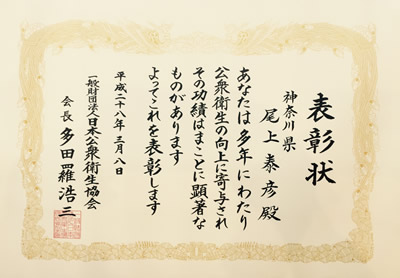 表彰状
神奈川県
尾上泰彦殿
あなたは多年にわたり
公衆衛生の向上に寄与され
その功績はまことに顕著な
ものがあります
よってこれを表彰します
平成二十八年三月八日
一般財団法人日本公衆衛生協会
会長 多田羅浩三